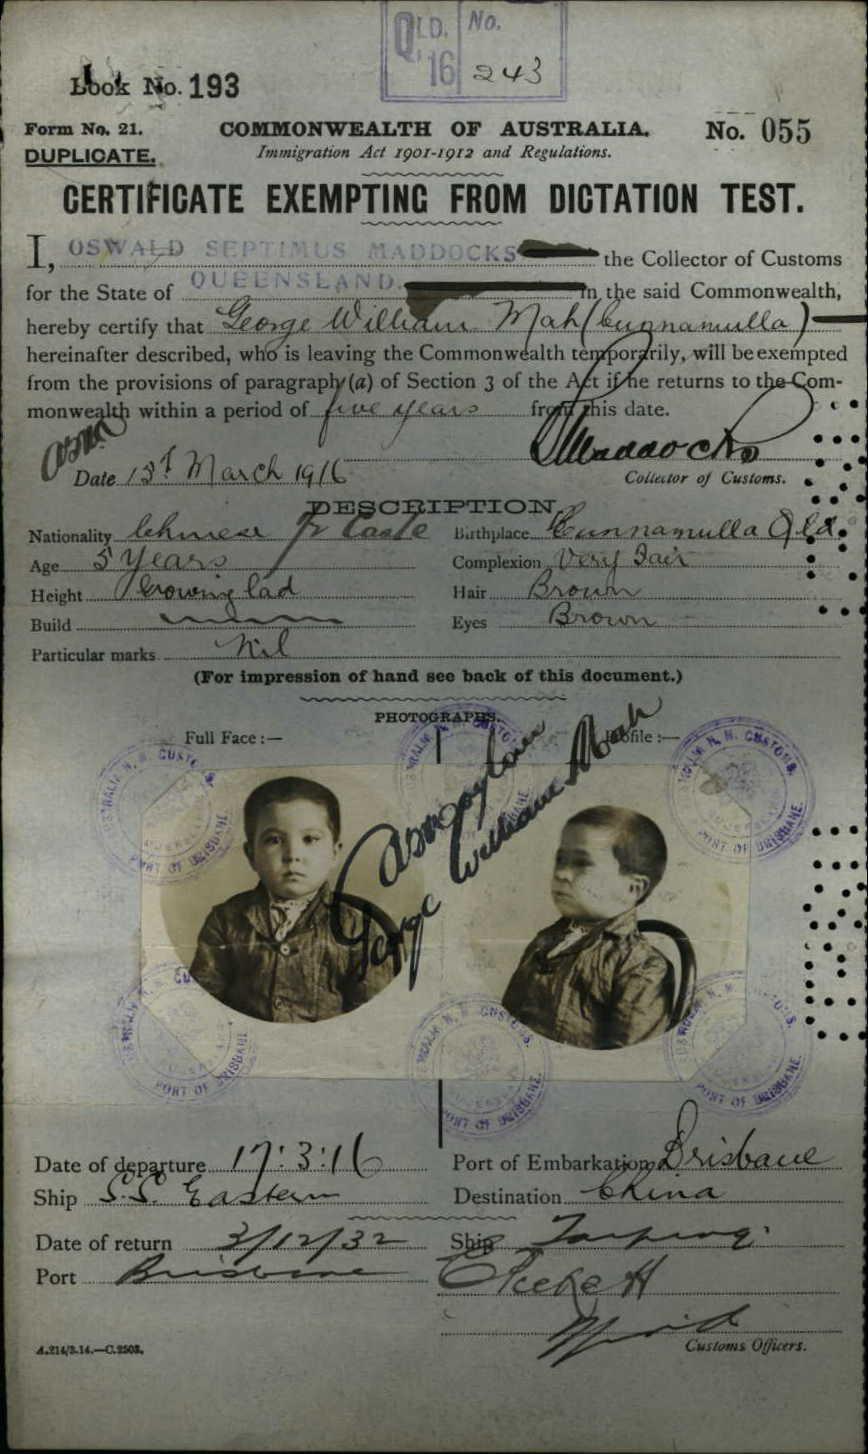 QLD. No.
'16 243
Book No. 193
Form No. 21. COMMONWEALTH OF AUSTRALIA. No. 055
DUPLICATE. Immigration Act 1901-1912 and Regulations.
CERTIFICATE EXEMPTING FROM DICTATION TEST.
I, OSWALD SEPTIMUS MADDOCKS the Collector of Customs
for the State of QUEENSLAND. in the said Commonwealth,
hereby certify that George William Mah (Cunnamulla)
hereinafter described, who is leaving the Commonwealth temporarily, will be exempted
from the provisions of paragraph (a) of Section 3 of the Act if he returns to the Com-
monwealth within a period of five years from this date.
Maddocks
Date 13th March 1916 Collector of Customs.
DESCRIPTION
Nationality Chinese ½ Caste Birthplace Cunnamulla Qld.
Age 5 years Complexion Very Fair
Height Growing lad Hair Brown
Build Eyes Brown
Particular marks Nil
(For impression of hand see back of this document.)
PHOTOGRAPHS.
Full Face :— Profile :—
George William Mah
PORT OF BRISBANE
Date of departure 17:3:16 Port of Embarkation Brisbane
Ship S.S. Eastern Destination China
Date of return 3/12/32 Ship Taiping
Port Brisbane
A.214/3.14.—C.2503. Customs Officers.